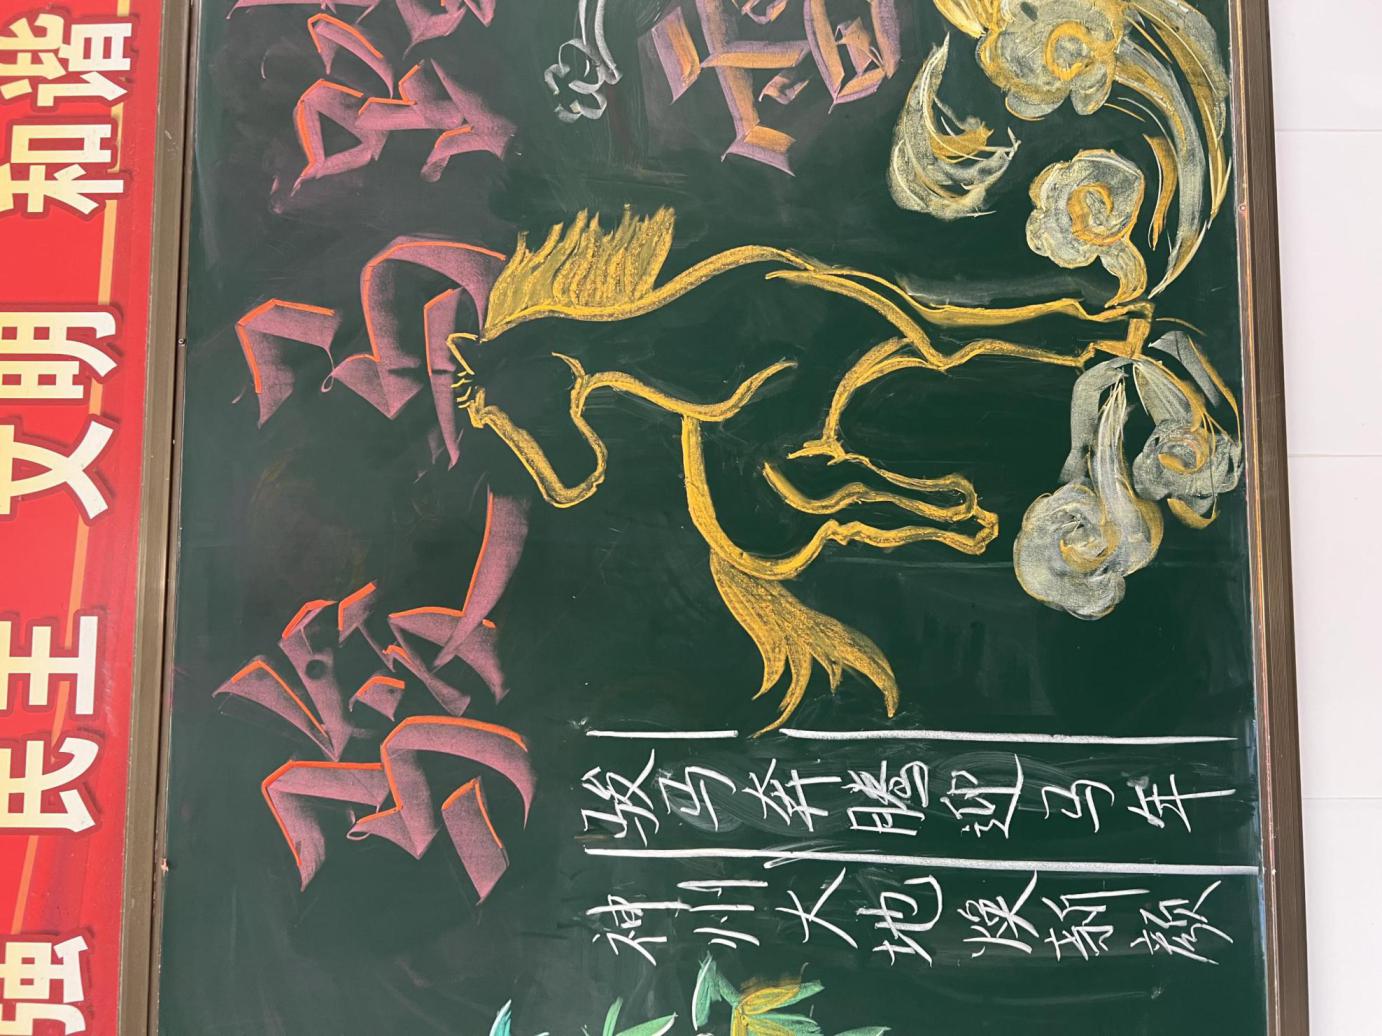 强 民主 文明 和谐
骏马
骏马奔腾迎马年
神州大地焕新颜